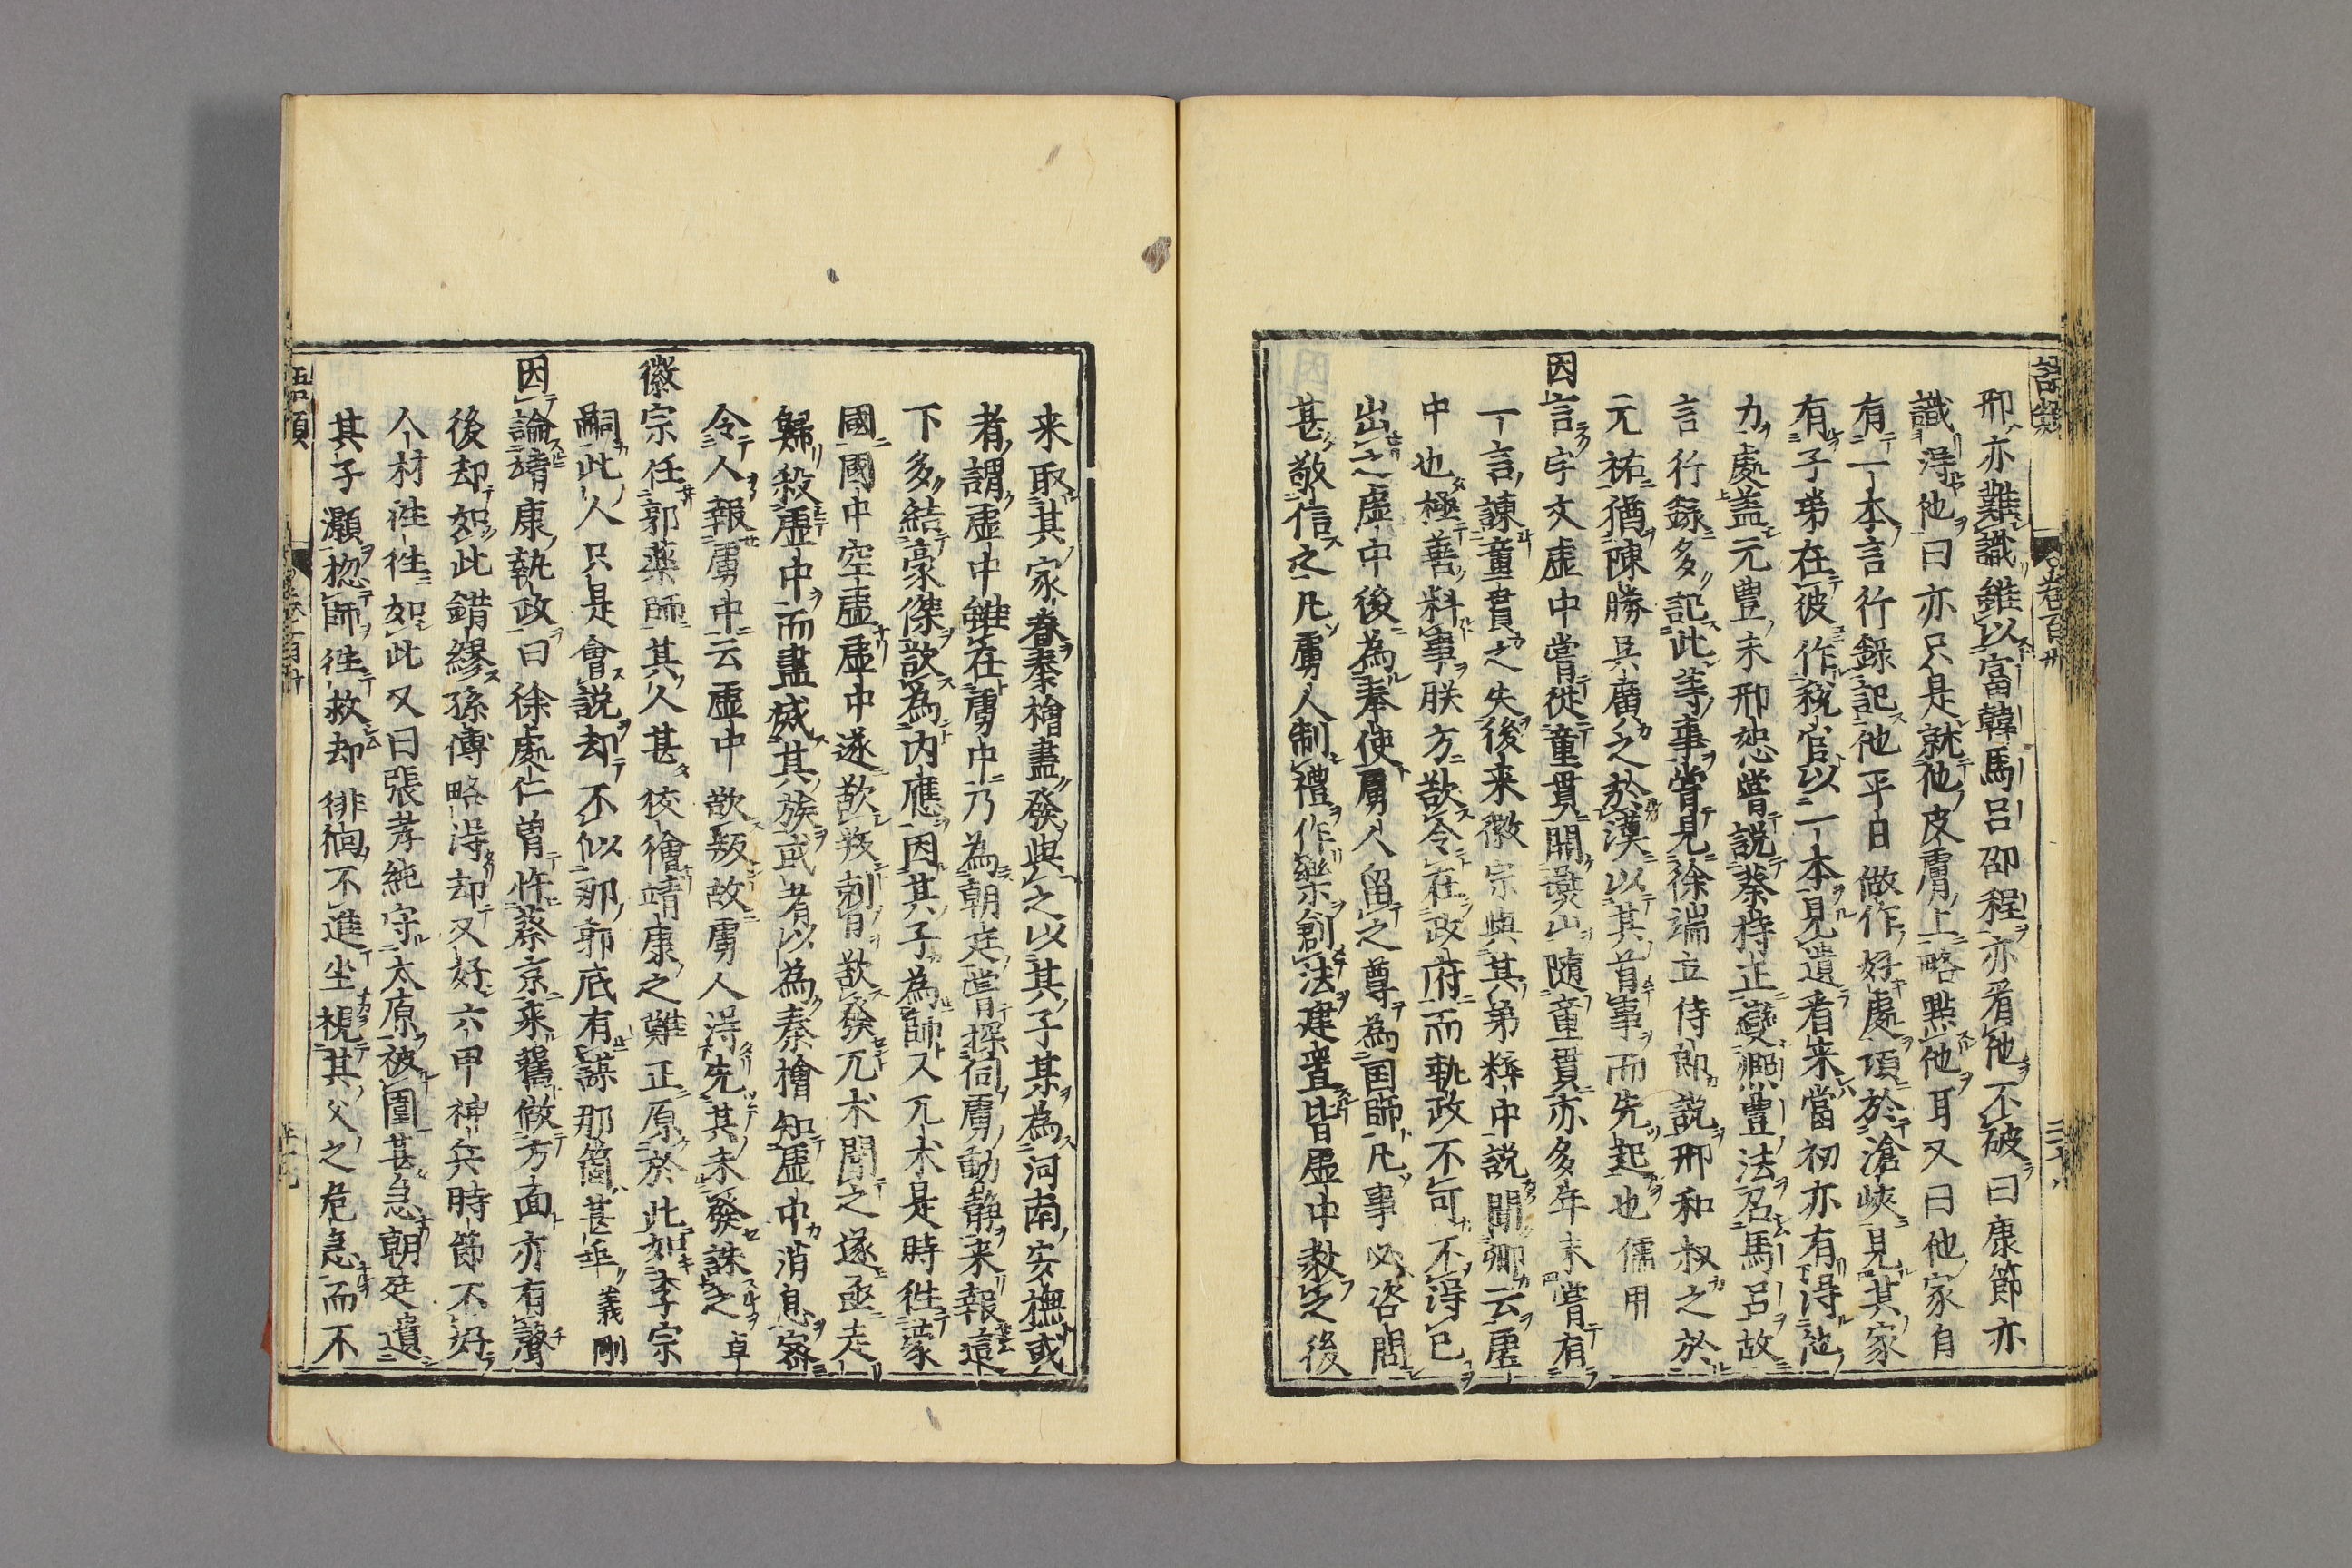 邢亦難識雖以富韓馬呂邵程亦看他不破曰康節亦
識得他曰亦只是就他皮膚上略點他耳又曰他家自
有一本言行錄記他平日做作好處頃於滄峽見其家
有子弟在彼作稅官以一本見遺看来當初亦有得他
力處蓋元豊末邢恕嘗説蔡持正變熈豊法召馬呂故
言行錄多記此等事嘗見徐端立侍郎説邢和叔之於
元祐猶陳勝呉廣之於漢以其首事而先起也 儒用
因言宇文虛中嘗從童貫開燕山隨童貫亦多年未嘗有
一言諫童貫之失後来徽宗與其弟粹中説聞卿云虛
中也極善料事朕方欲令在政府而執政不可不得已
出之虛中後為奉使虜人留之尊為国師凡事必咨問
甚敬信之凡虜人制禮作樂創法建置皆虛中教之後
来取其家眷秦檜盡發與之以其子某為河南安撫或
者謂虛中雖在虜中乃為朝廷嘗探伺虜動静来報這
下多結豪傑欲為内應因其子為帥又兀朮是時徃蒙
國國中空虛虛中遂欲叛剋日欲發兀朮聞之遂亟走
歸殺虛中而盡滅其族或者以為秦檜知虛中消息密
令人報虜中云虛中欲叛故虜人得先其未發誅之 卓
徽宗任郭藥師其人甚狡獪靖康之難正原於此如李宗
嗣此人只是會説却不似那郭底有謀那箇甚乖 義剛
因論靖康執政曰徐處仁曾忤蔡京来舊做方面亦有聲
後却如此錯繆孫傅略得却又好六甲神兵時節不好
人材徃徃如此又曰張孝純守太原被圍甚急朝廷遣
其子灝揔師徃救却徘徊不進坐視其父之危急而不